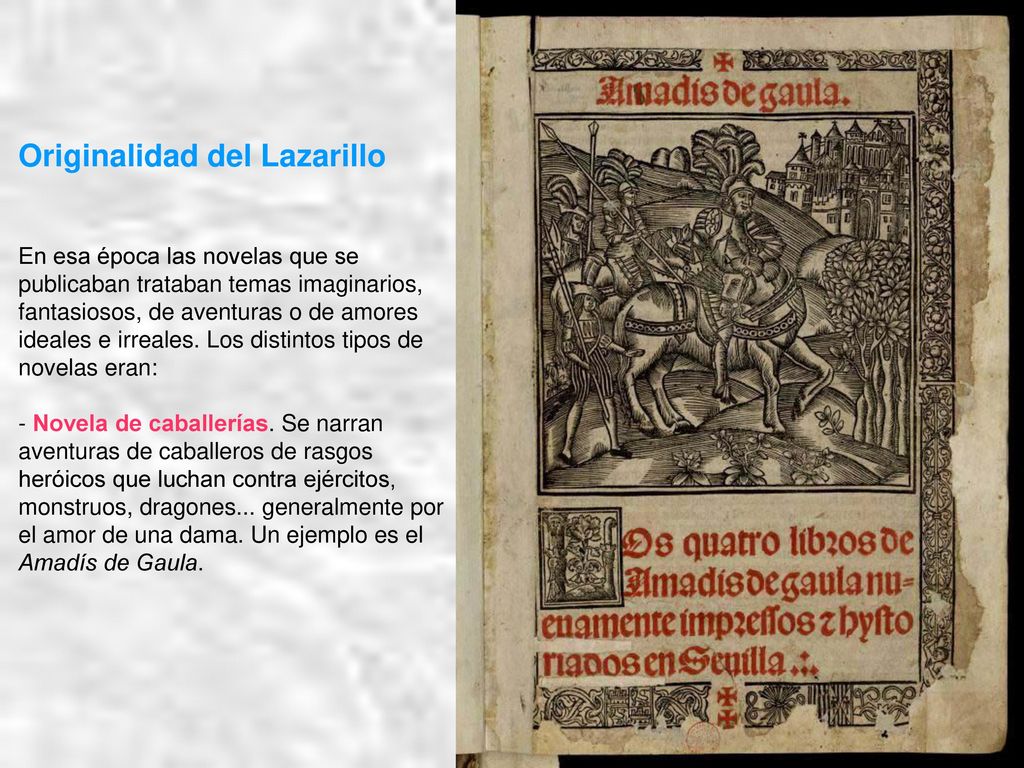 Originalidad del Lazarillo
En esa época las novelas que se
publicaban trataban temas imaginarios,
fantasiosos, de aventuras o de amores
ideales e irreales. Los distintos tipos de
novelas eran:
- Novela de caballerías. Se narran
aventuras de caballeros de rasgos
heróicos que luchan contra ejércitos,
monstruos, dragones... generalmente por
el amor de una dama. Un ejemplo es el
Amadís de Gaula.
Amadis de gaula.
LOs quatro libros de
Amadis de gaula nu=
euamente impressos ⁊ hysto
riados en Seuilla .:.